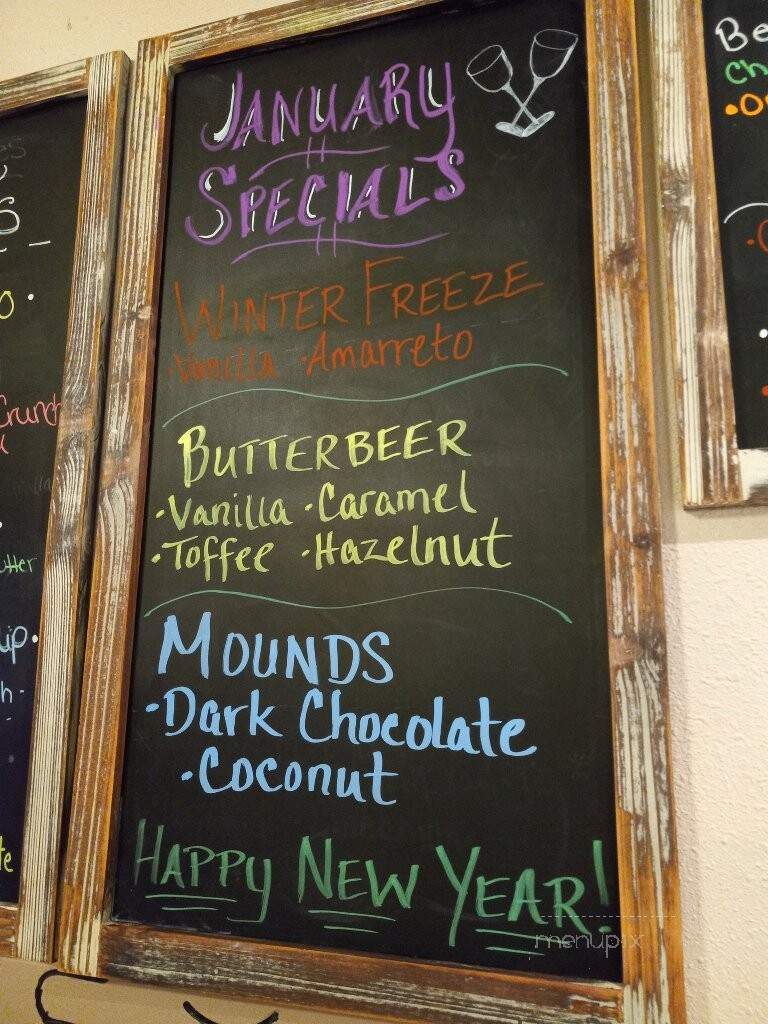 JANUARY
SPECIALS
WINTER FREEZE
·Vanilla ·Amarreto
BUTTERBEER
·Vanilla ·Caramel
·Toffee ·Hazelnut
MOUNDS
·Dark Chocolate
·Coconut
HAPPY NEW YEAR!
menupix
Crunch
Be